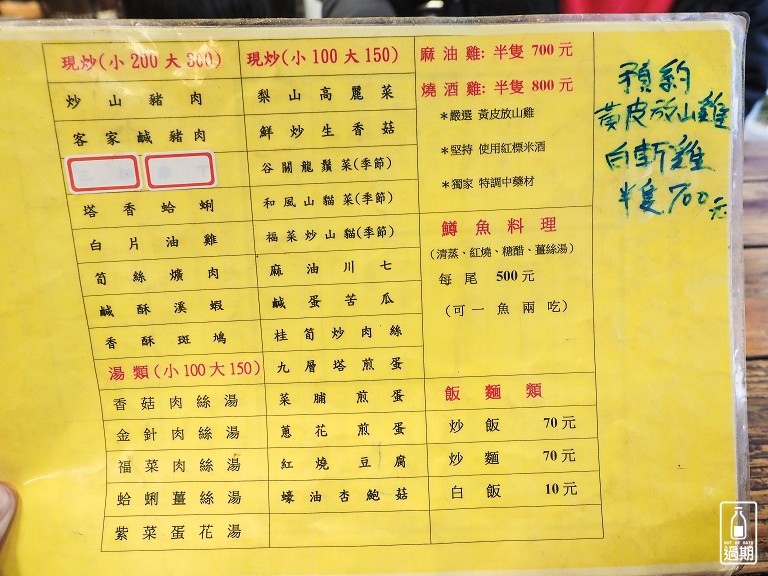 現炒(小200大300)
炒山豬肉
客家鹹豬肉
塔香蛤蜊
白片油雞
筍絲爌肉
鹹酥溪蝦
香酥斑鳩
湯類(小100大150)
香菇肉絲湯
金針肉絲湯
福菜肉絲湯
蛤蜊薑絲湯
紫菜蛋花湯
現炒(小100大150)
梨山高麗菜
鮮炒生香菇
谷關龍鬚菜(季節)
和風山貓菜(季節)
福菜炒山貓(季節)
麻油川七
鹹蛋苦瓜
桂筍炒肉絲
九層塔煎蛋
菜脯煎蛋
蔥花煎蛋
紅燒豆腐
蠔油杏鮑菇
麻油雞: 半隻 700 元
燒酒雞: 半隻 800 元
*嚴選 黃皮放山雞
*堅持 使用紅標米酒
*獨家 特調中藥材
鱒魚料理
(清蒸、紅燒、糖醋、薑絲湯)
每尾 500元
(可一魚兩吃)
飯麵類
炒飯 70元
炒麵 70元
白飯 10元
預約
黃皮放山雞
白斬雞
半隻700元
OUT OF DATE
過期